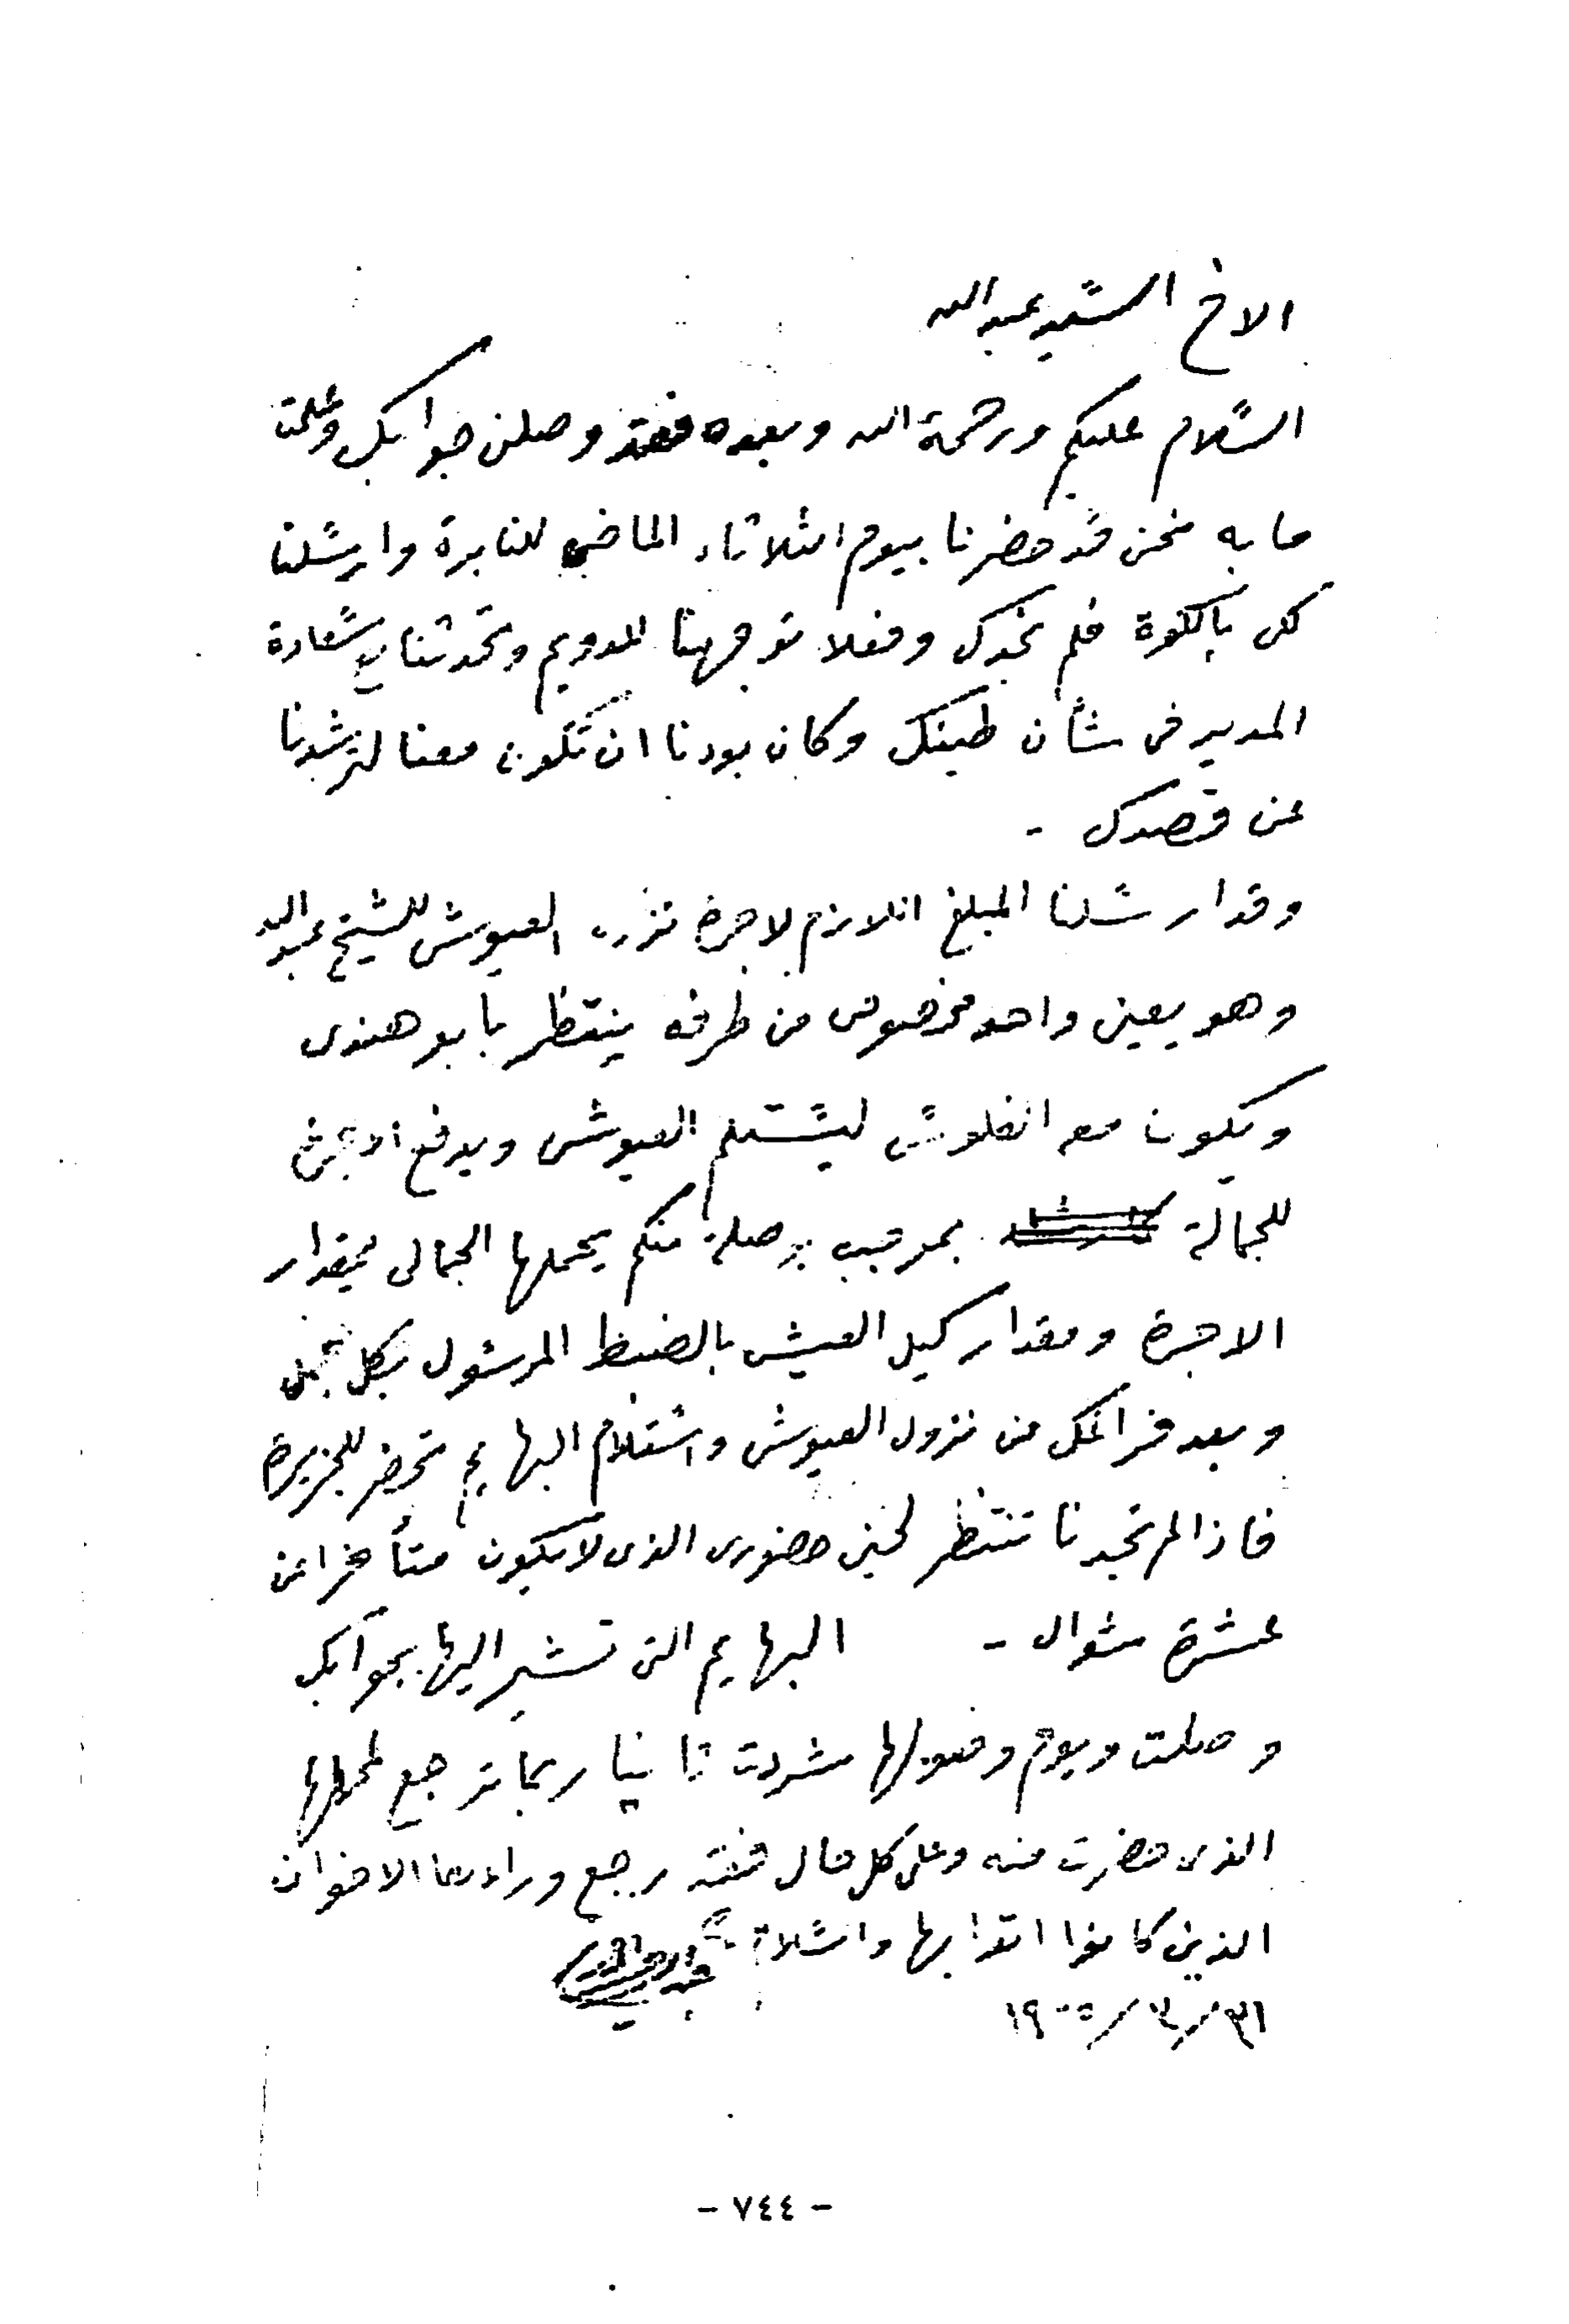 الاخ السيد عبد الله
السلام عليكم ورحمة الله وبعده فقد وصلنى جوابك وعلمت
ما به نحن قد حضرنا بيوم الثلاثاء الماضى للنابرة وارسلنا
لك بالكوة فلم نجدك وفعلا توجهنا للدويم وتحدثنا مع سعادة
المدير فى شأن طينك وكان بودنا ان تكون معنا لترشدنا
عن قصدك -
وقد ارسلنا المبلغ اللازم لاجرة نزول العيوش للشيخ عبد الله
وهو يعين واحد مخصوص من طرفه ينتظر بابو هندى
ويكون معه الفلوس ليستلم العيوش ويدفع الاجرة
للجمالة بموجب وصلة منكم يحملها الجمالى بمقدار
الاجرة ومقدار كيل العيش بالضبط المرسول بكل جمل
وبعد فراغك من نزول العيوش واستلام البهايم تحضر للجزيرة
فاذا لم تجدنا تنتظر لحين حضورى الذى لا يكون متأخرا عن
عشرة شوال - البهايم التى تشير اليها بجوابك
وصلت ويوم وصولها شردت ثانيا ربما ترجع لمحلها
الذى حضرت منه وعلى كل حال فقد رجع وراءها الاخوان
الذين كانوا اتوا بها والسلام
- ٧٤٤ -